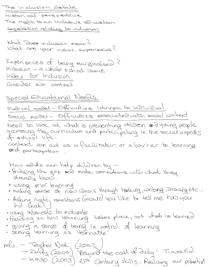 The Inclusion Debate
Historical perspective
The right to an inclusive education
Legislation relating to inclusion
What does inclusion mean?
What are your views, experiences?
Experiences of being marginalised?
Inclusion - a whole school issue
Policy for inclusion
Consider our context
Special Educational Needs
Medical model - Difficulties belongs to individual
Social model - Difficulties associated with social context
Need to look at what is preventing children and young people
accessing the curriculum and participating in the social aspects
of school life.
Context can act as a facilitator or a barrier to learning
and participation
How adults can help children by -
• Bridging the gap and make connections with what they
already know
• using prior learning
• making sense of new ideas through talking, writing, drawing etc.
• Asking open questions (would you like to tell me how you
did that)
• using interests to motivate
• Focusing on how learning takes place, not what is learned
• giving a sense of being in control of learning
• seeing learning as tentative
refs. - Teacher Net (2007)
- (2004) 'Beyond the Call of Duty'
- HMSO (2003) 21st Century Skills: Realising our potential